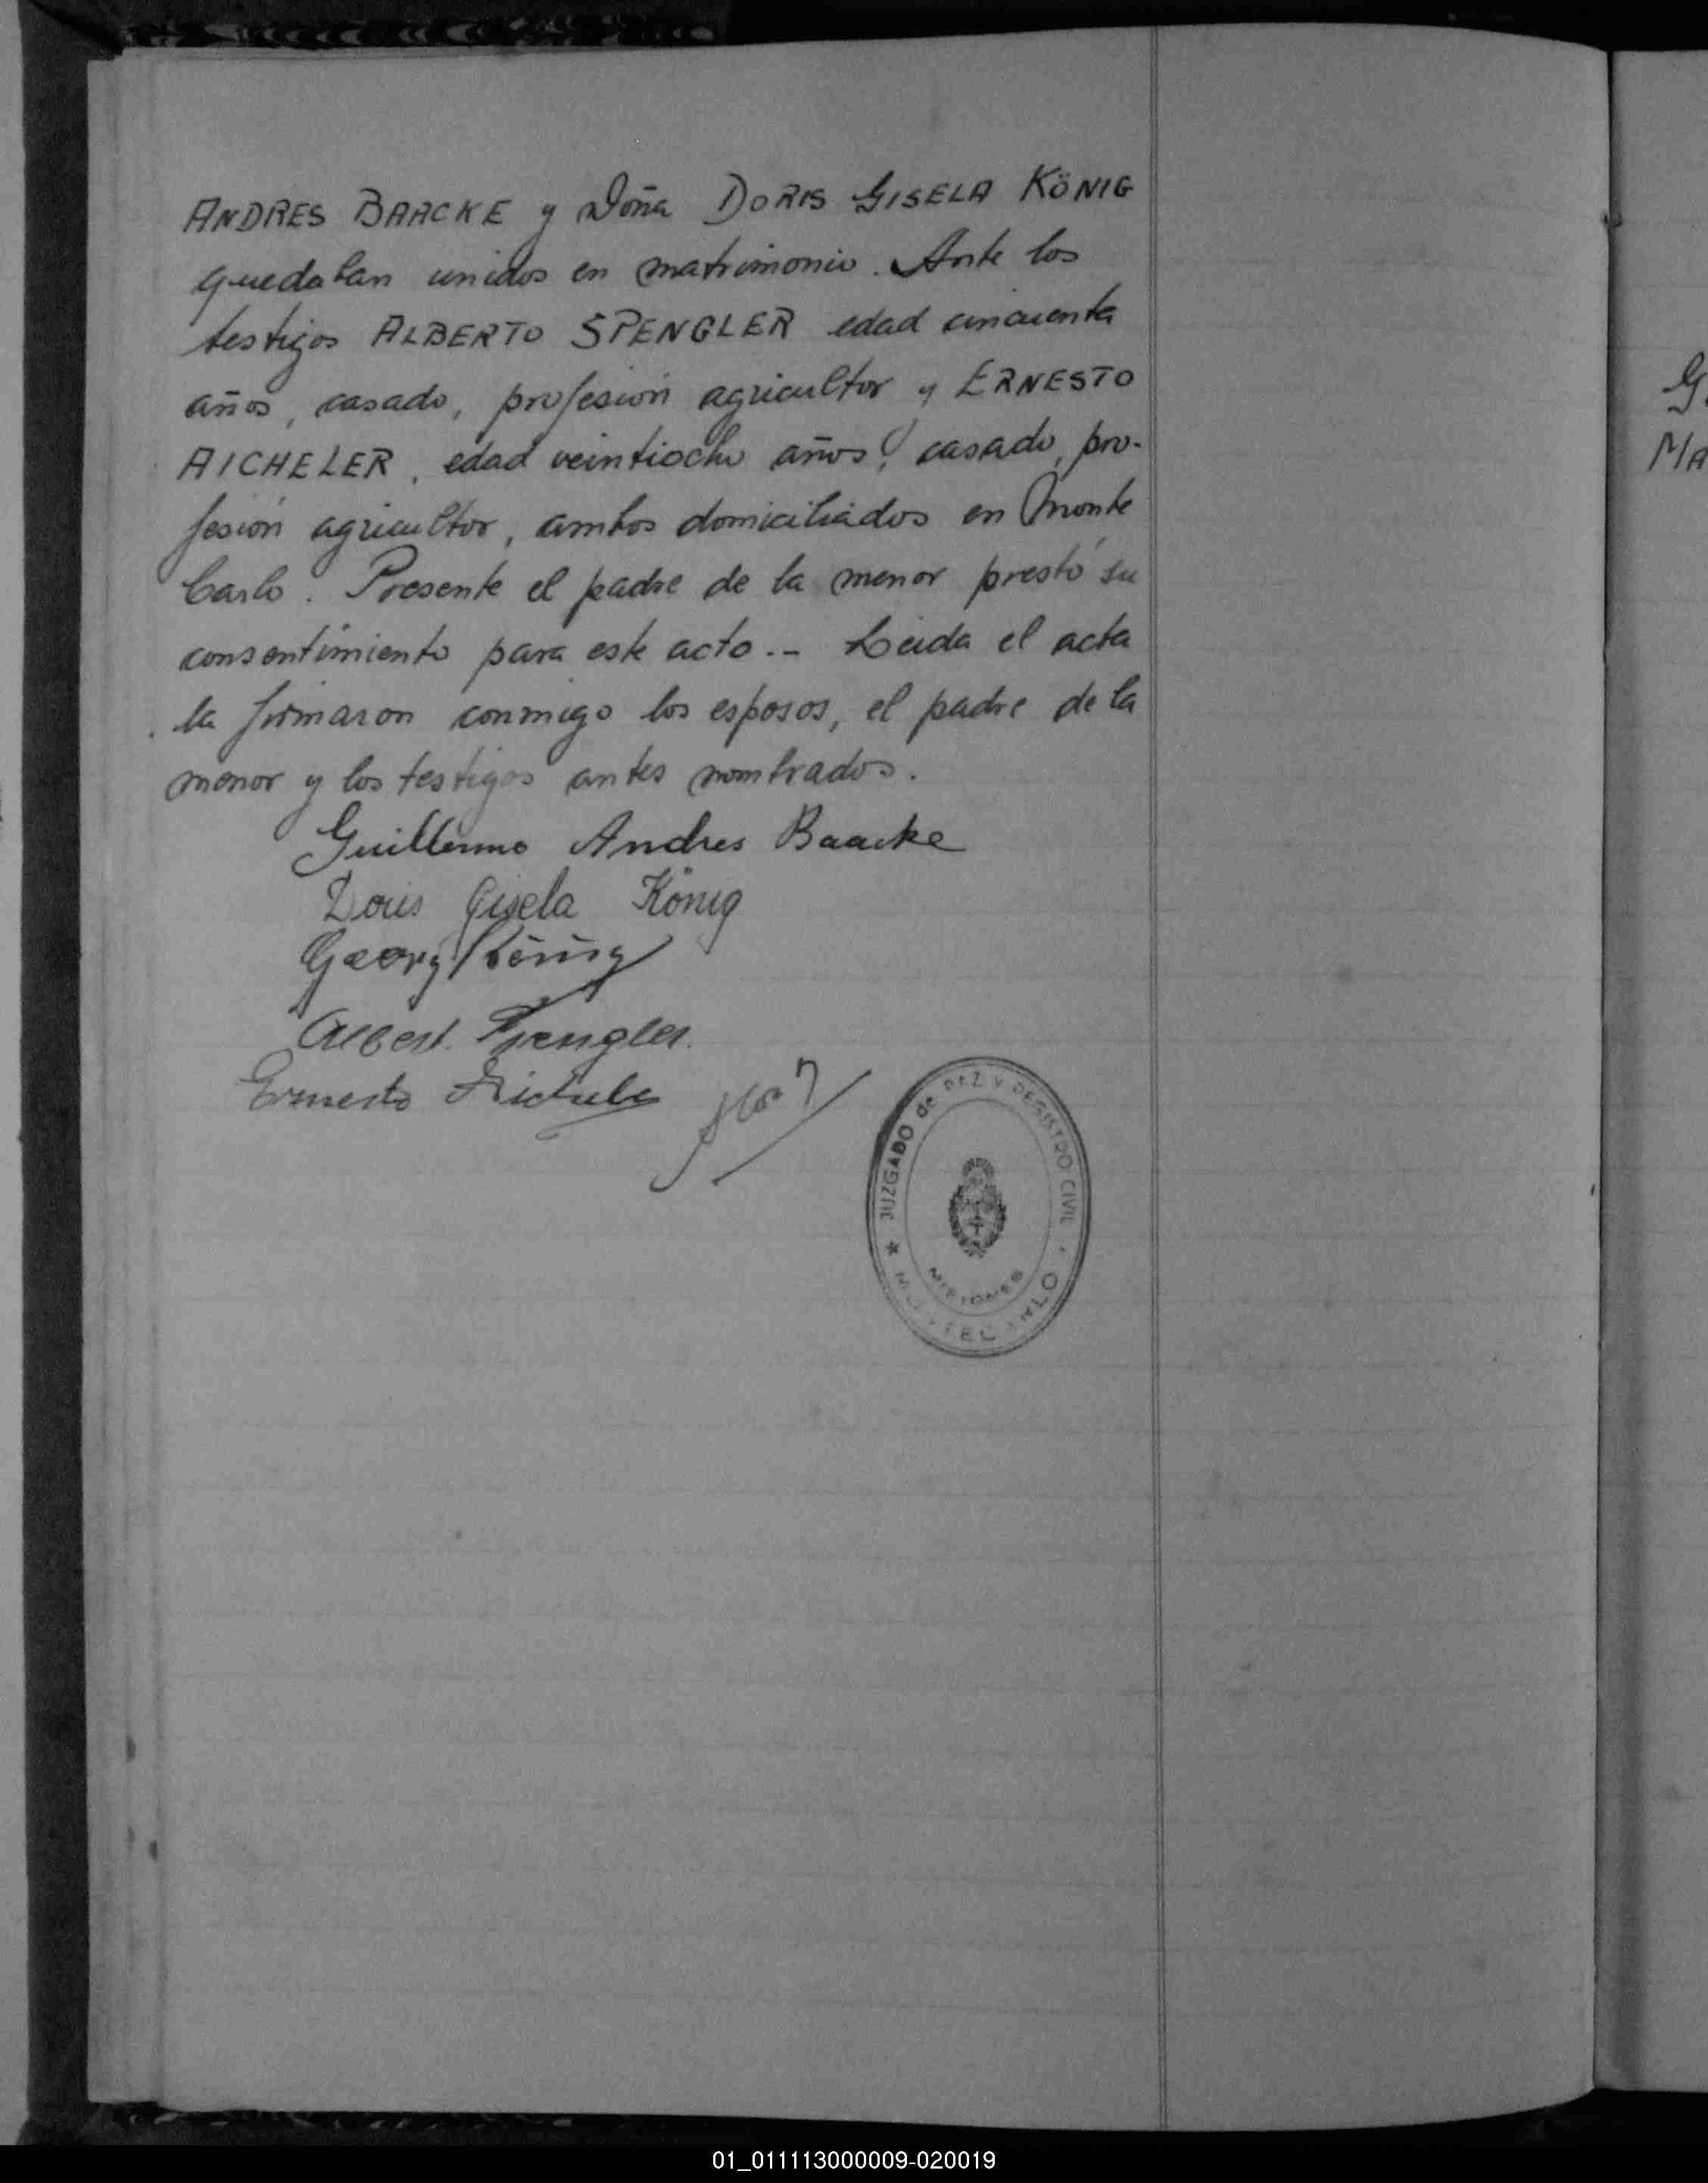 ANDRES BAACKE y Doña DORIS GISELA KÖNIG
quedaban unidos en matrimonio. Ante los
testigos ALBERTO SPENGLER edad cincuenta
años, casado, profesión agricultor y ERNESTO
AICHELER, edad veintiocho años, casado, pro-
fesión agricultor, ambos domiciliados en Monte
Carlo. Presente el padre de la menor prestó su
consentimiento para este acto.- Leida el acta
la firmaron conmigo los esposos, el padre de la
menor y los testigos antes nombrados.
Guillermo Andres Baacke
Doris Gisela König
Georg König
Albert Spengler.
Ernesto Aicheler
JUZGADO de PAZ Y REGISTRO CIVIL
MISIONES
MONTECARLO
G
MA
01_011113000009-020019